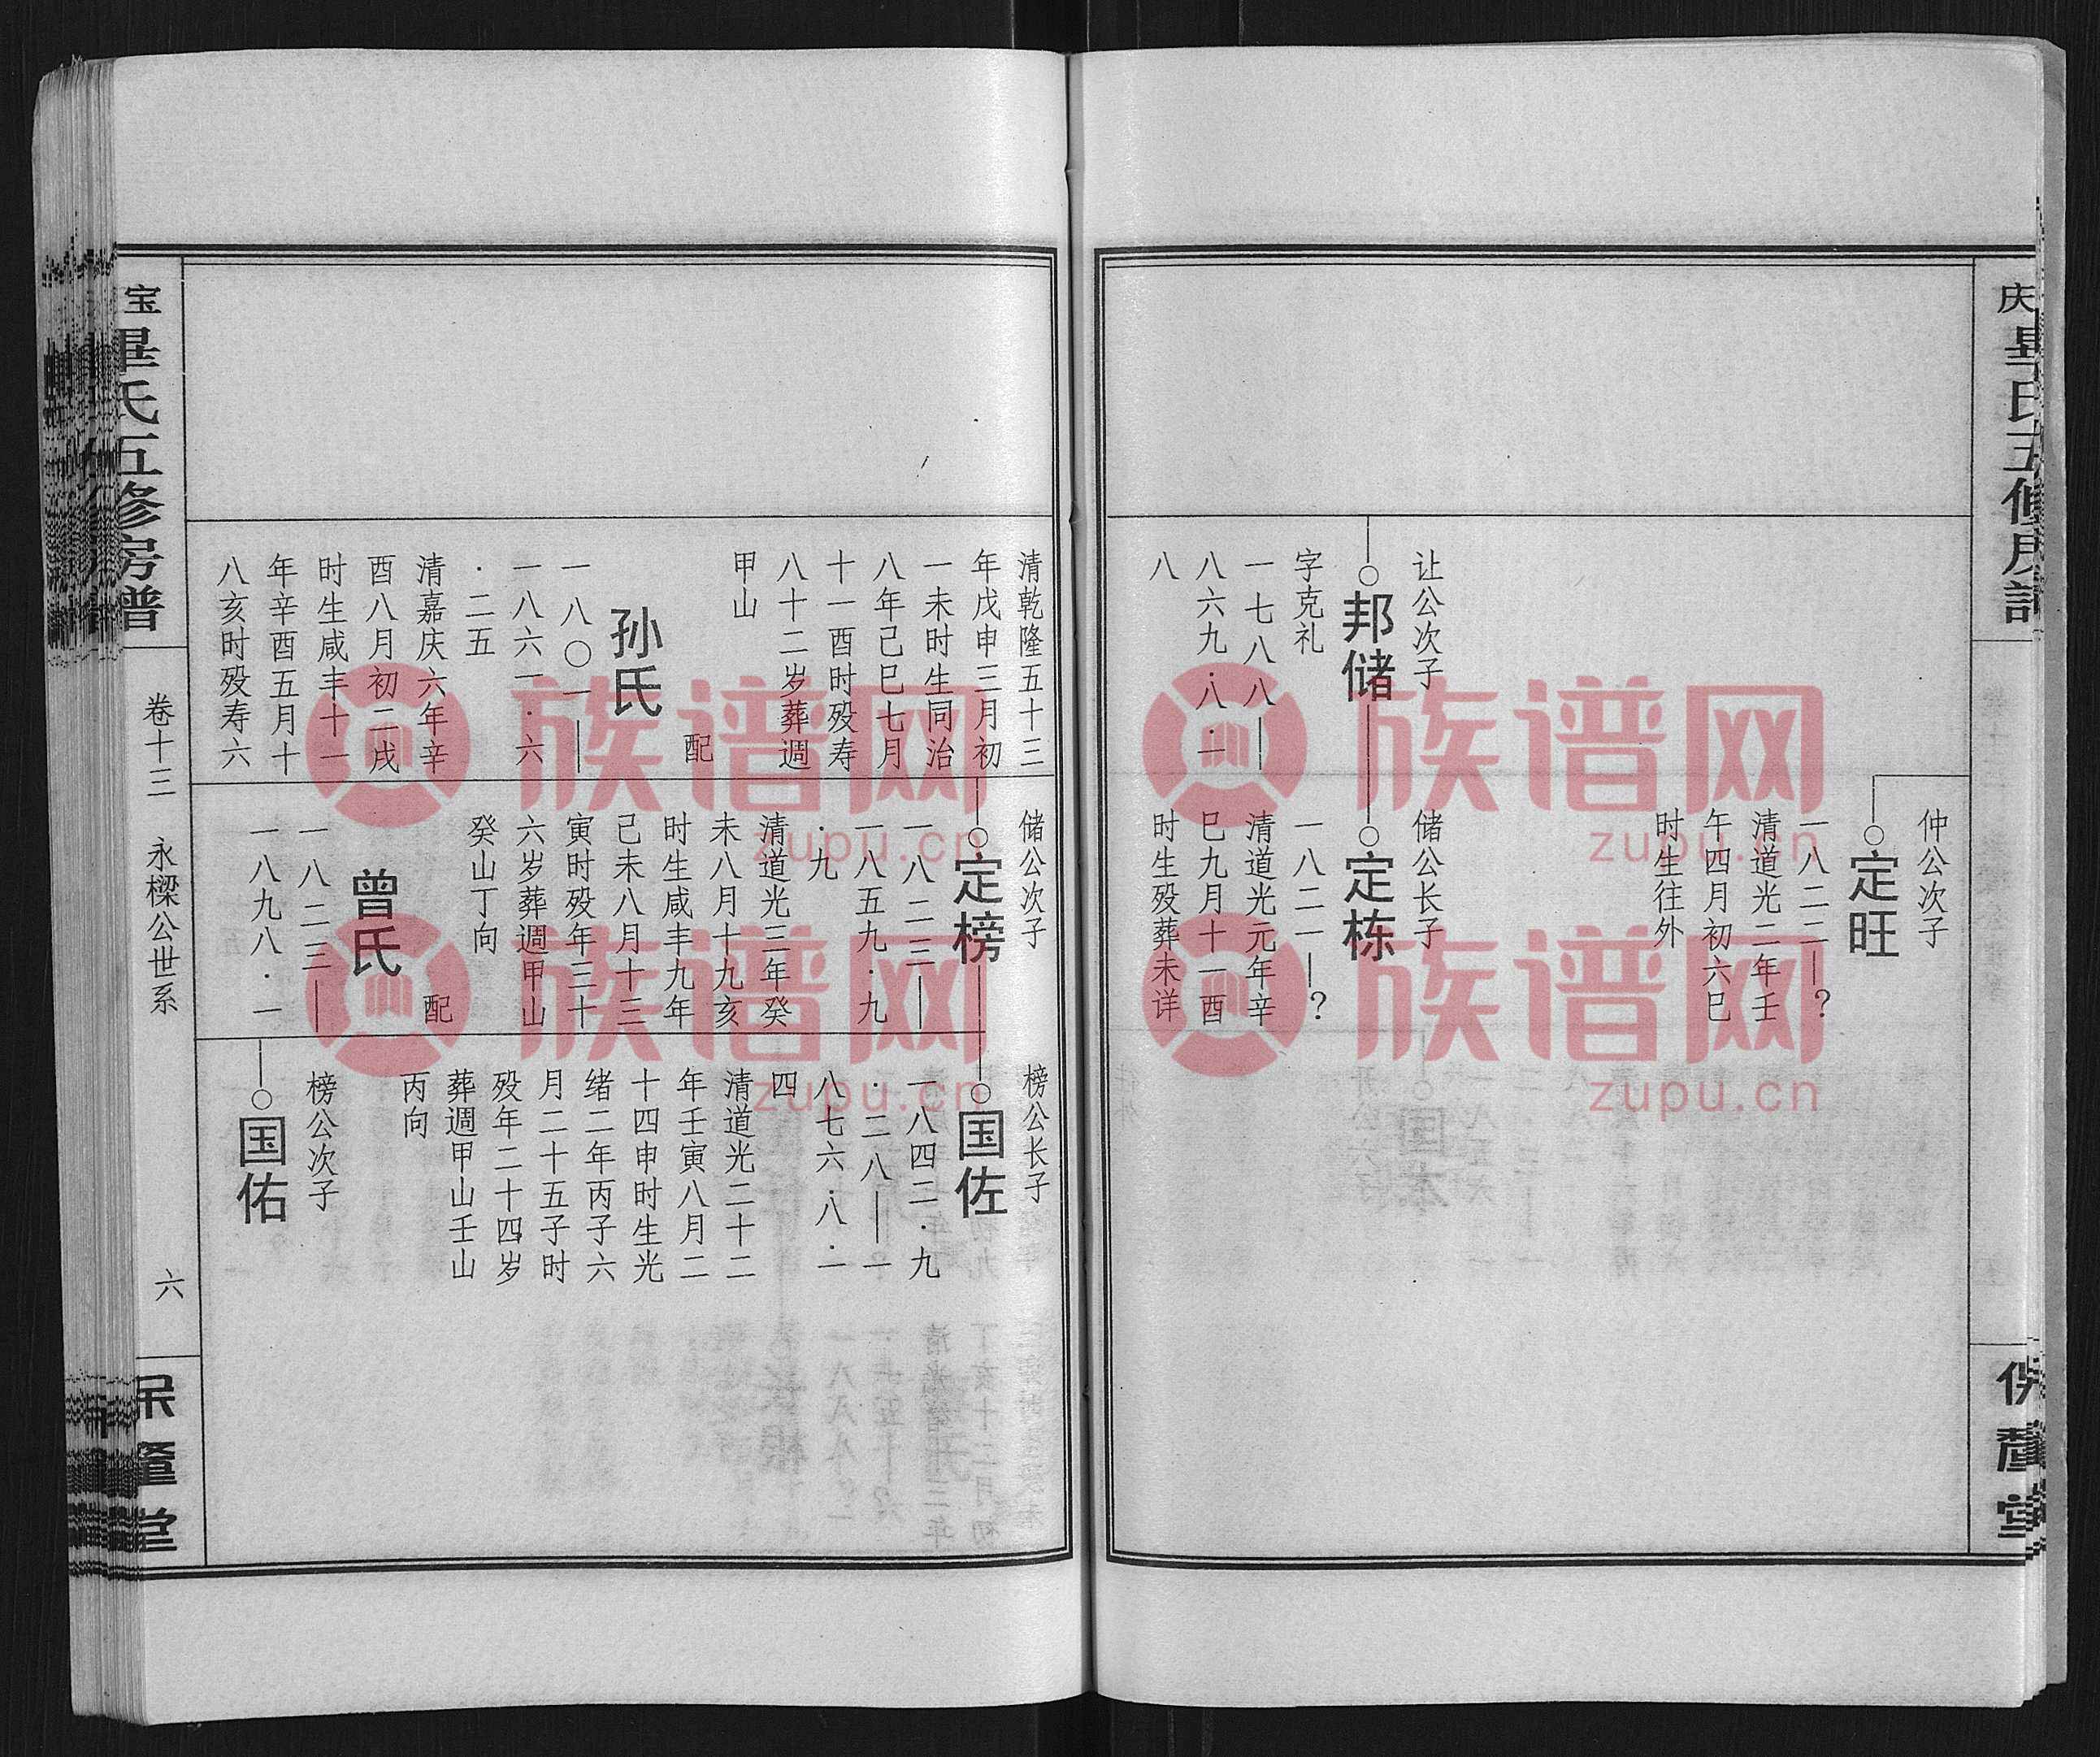 仲公次子
定旺
一八二二—?
清道光二年壬
午四月初六巳
时生往外
让公次子
邦储
字克礼
一七八八—
一八六九·八·一
八
储公长子
定栋
一八二一—?
清道光元年辛
巳九月十一酉
时生殁葬未详
清乾隆五十三
年戊申三月初
一未时生同治
八年己巳七月
十一酉时殁寿
八十二岁葬週
甲山
配
孙氏
一八〇一—
一八六一·六
·二五
清嘉庆六年辛
酉八月初二戌
时生咸丰十一
年辛酉五月十
八亥时殁寿六
储公次子
定榜
一八二三—
一八五九·九
·九
清道光三年癸
未八月十九亥
时生咸丰九年
己未八月十三
寅时殁年三十
六岁葬週甲山
癸山丁向
配
曾氏
一八二三—
一八九八·一
榜公长子
国佐
一八四二·九
·二八—一
八七六·八·一
四
清道光二十二
年壬寅八月二
十四申时生光
绪二年丙子六
月二十五子时
殁年二十四岁
葬週甲山壬山
丙向
榜公次子
国佑
宝
氏五修房谱
卷十三 永樑公世系
六
族谱网
zupu.cn
族谱网
zupu.cn
族谱网
zupu.cn
族谱网
zupu.cn